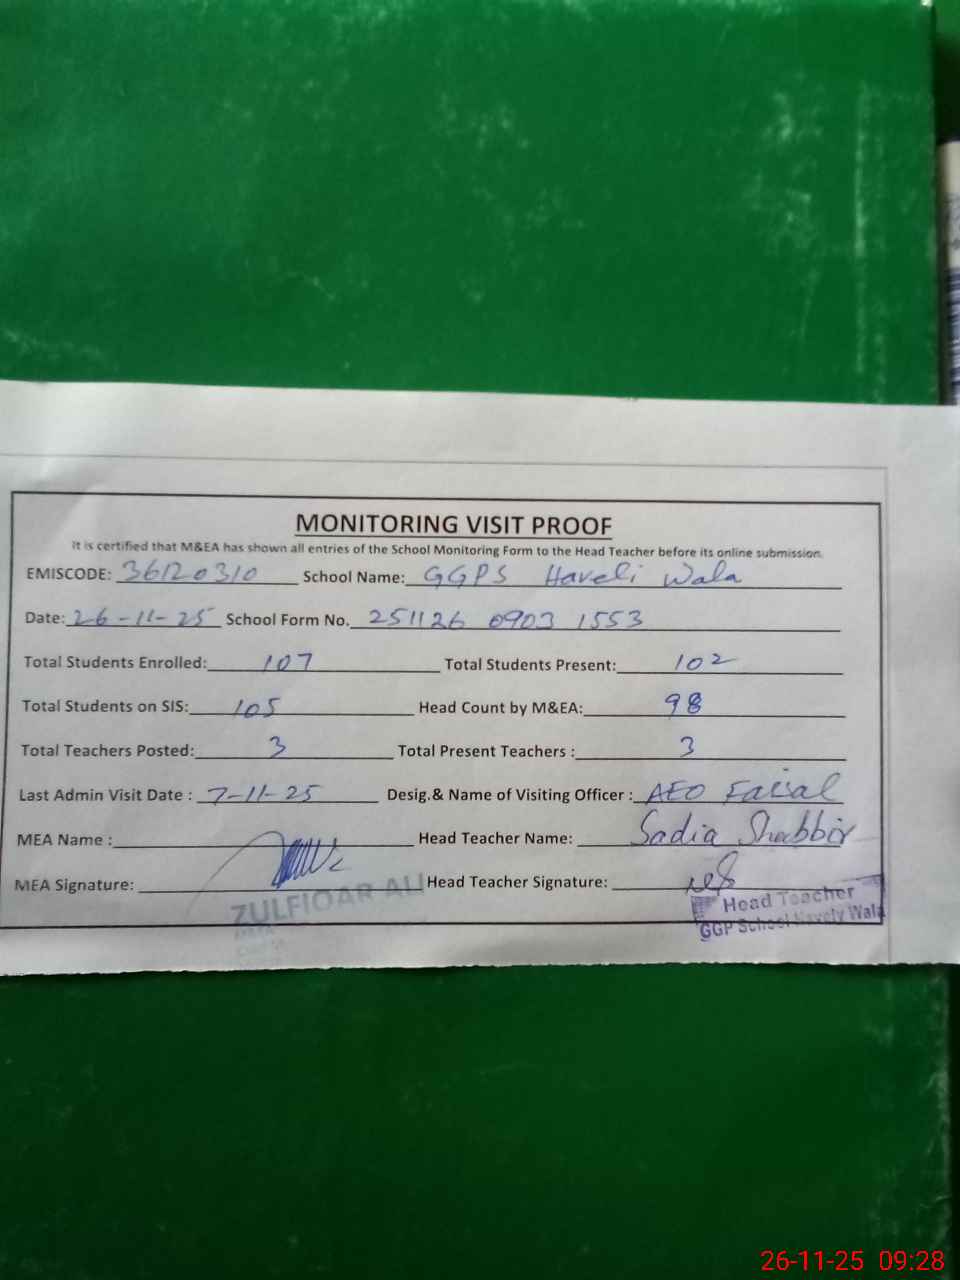 MONITORING VISIT PROOF
It is certified that M&EA has shown all entries of the School Monitoring Form to the Head Teacher before its online submission.
EMISCODE: 36120310 School Name: GGPS Haveli Wala
Date: 26-11-25 School Form No. 251126 0903 1553
Total Students Enrolled: 107 Total Students Present: 102
Total Students on SIS: 105 Head Count by M&EA: 98
Total Teachers Posted: 3 Total Present Teachers : 3
Last Admin Visit Date : 7-11-25 Desig.& Name of Visiting Officer : AEO Faisal
MEA Name : Head Teacher Name: Sadia Shabbir
MEA Signature: Head Teacher Signature:
ZULFIQAR ALI
Head Teacher
GGP School Havely Wala
26-11-25 09:28